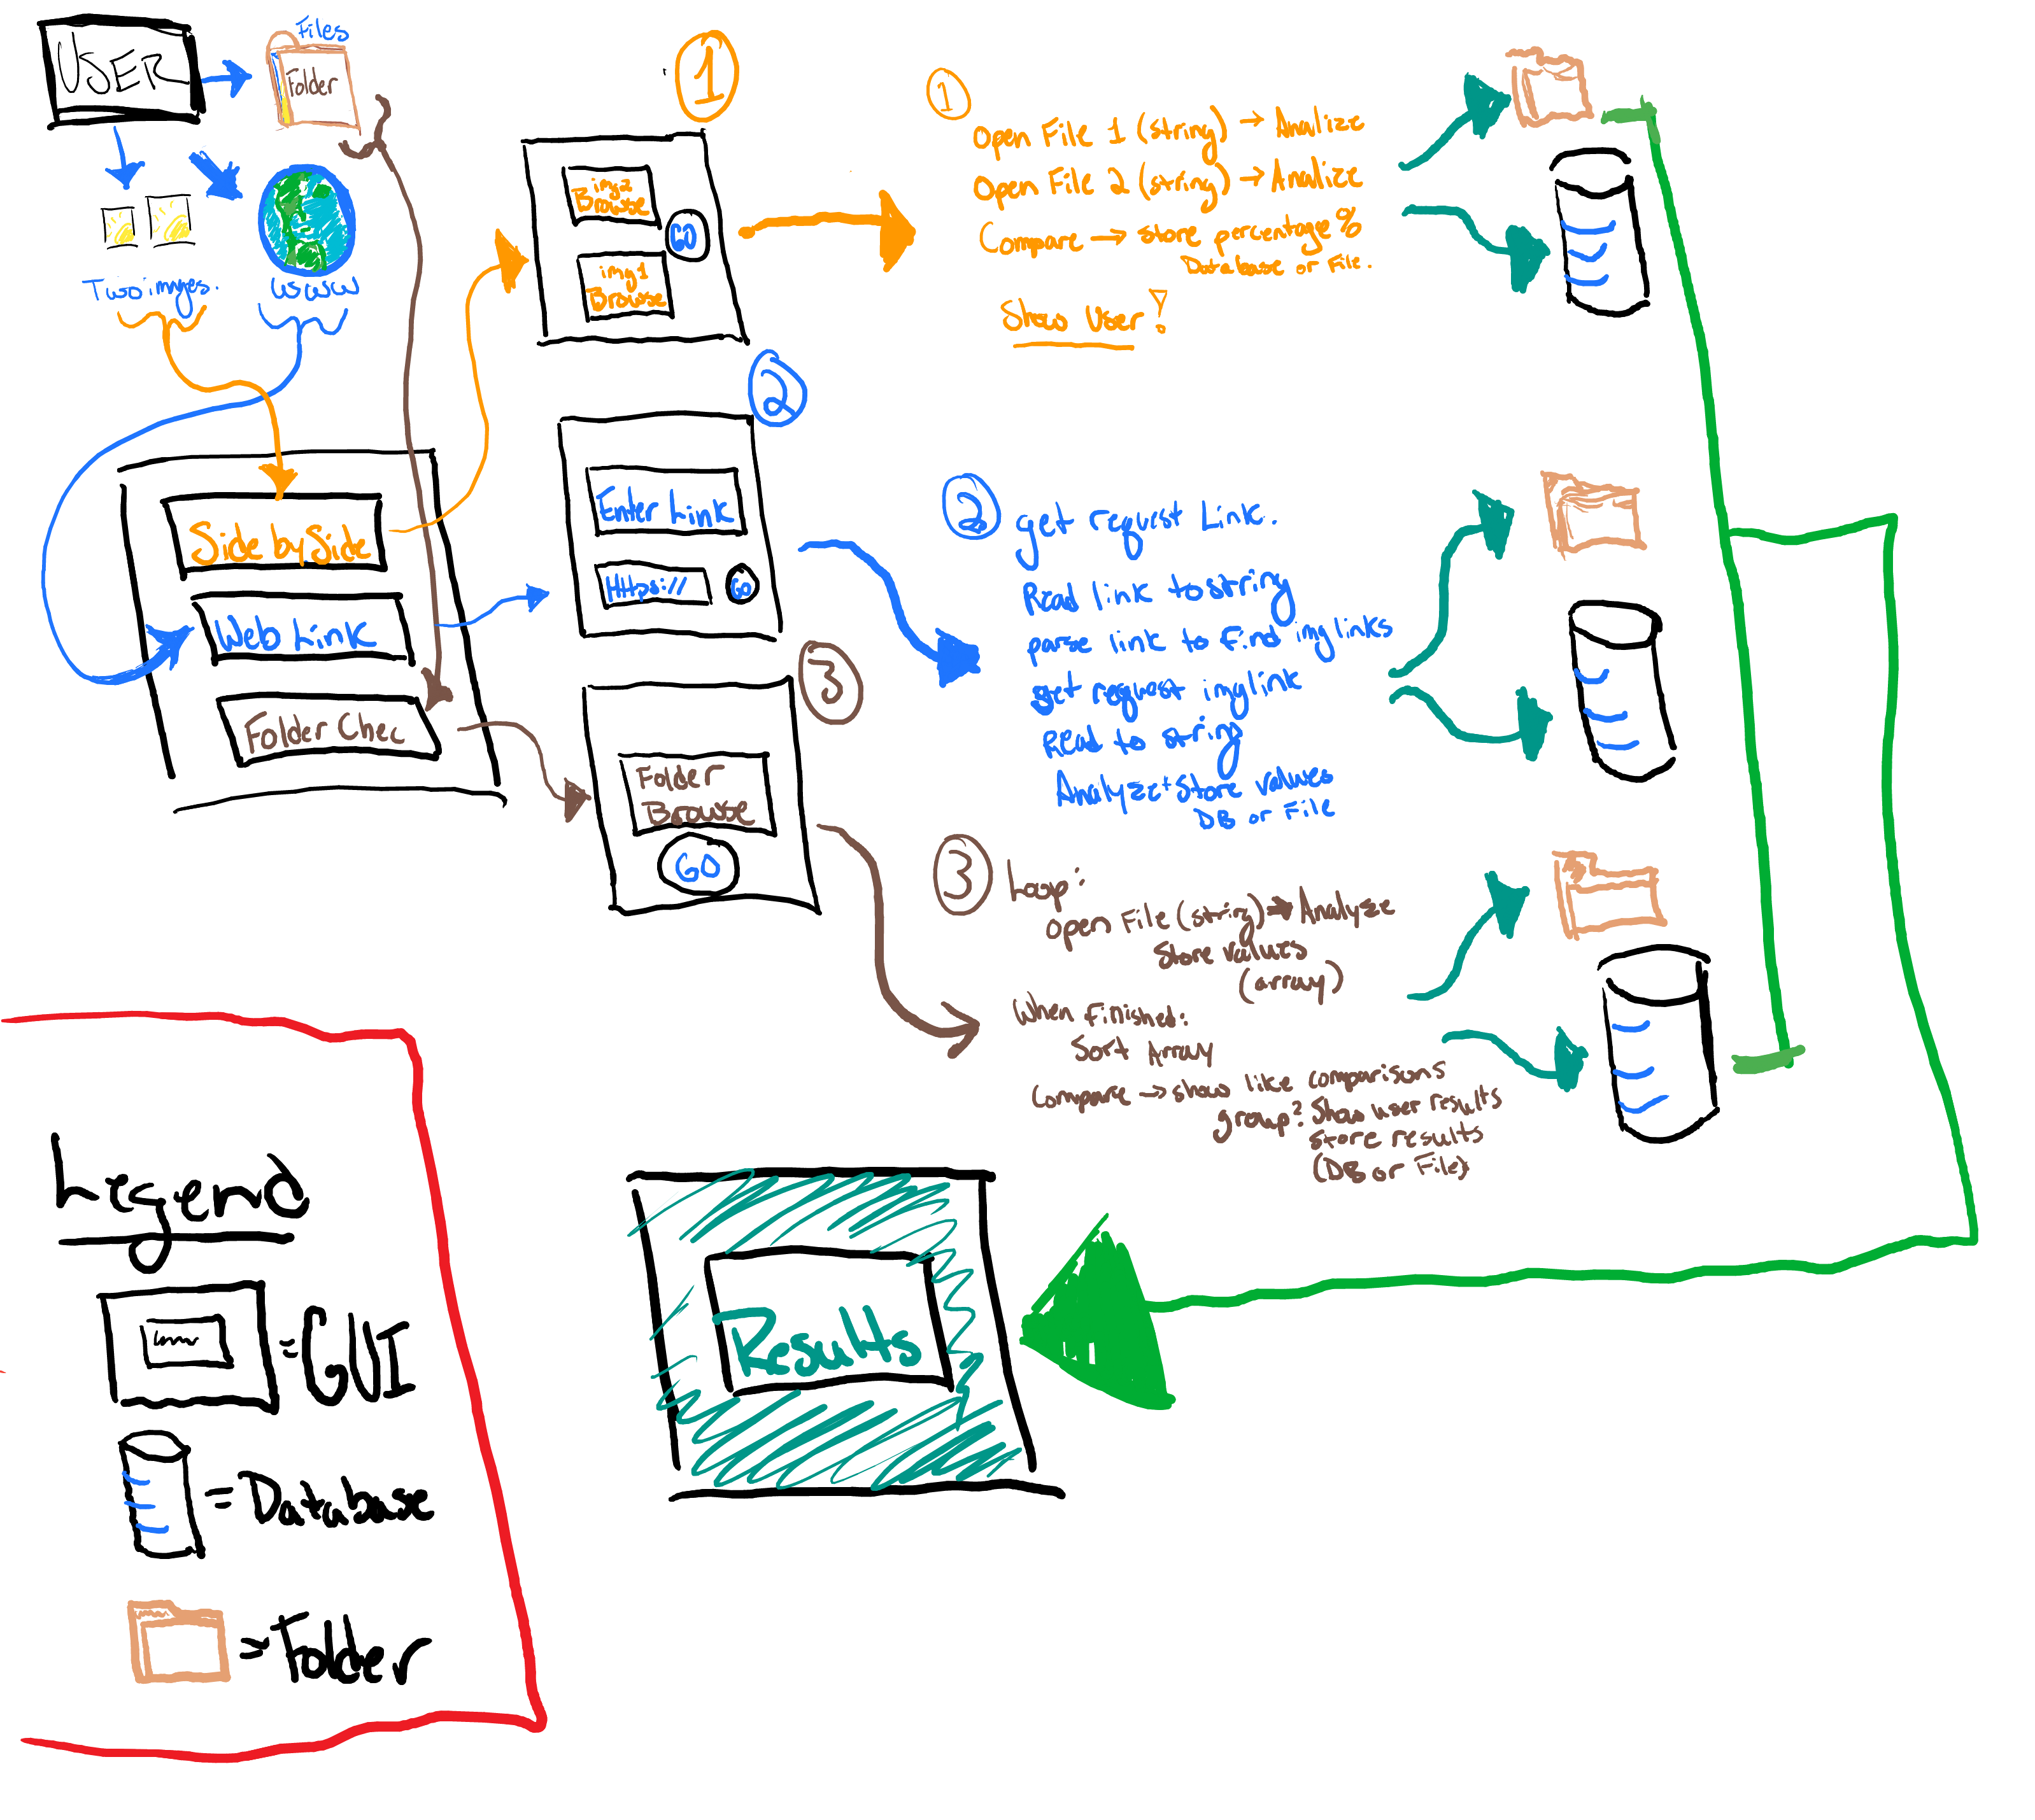 USER
Files
Folder
Two images.
WWW
Side by Side
Web Link
Folder Chec
1
img2
Browse
GO
img1
Browse
2
Enter Link
Https://
GO
3
Folder
Browse
GO
1
Open File 1 (string) → Analize
Open File 2 (string) → Analize
Compare → store percentage %
Database or File.
Show User!
2
get request Link.
Read link to string
parse link to find img links
get request img link
Read to string
Analyze + Store values
DB or File
3
Loop:
open File (string) → Analyze
Store values
(array)
When Finished:
Sort Array
Compare → show like comparisons
group? Show user results
store results
(DB or File)
Results
Legend
= GUI
= Database
= Folder